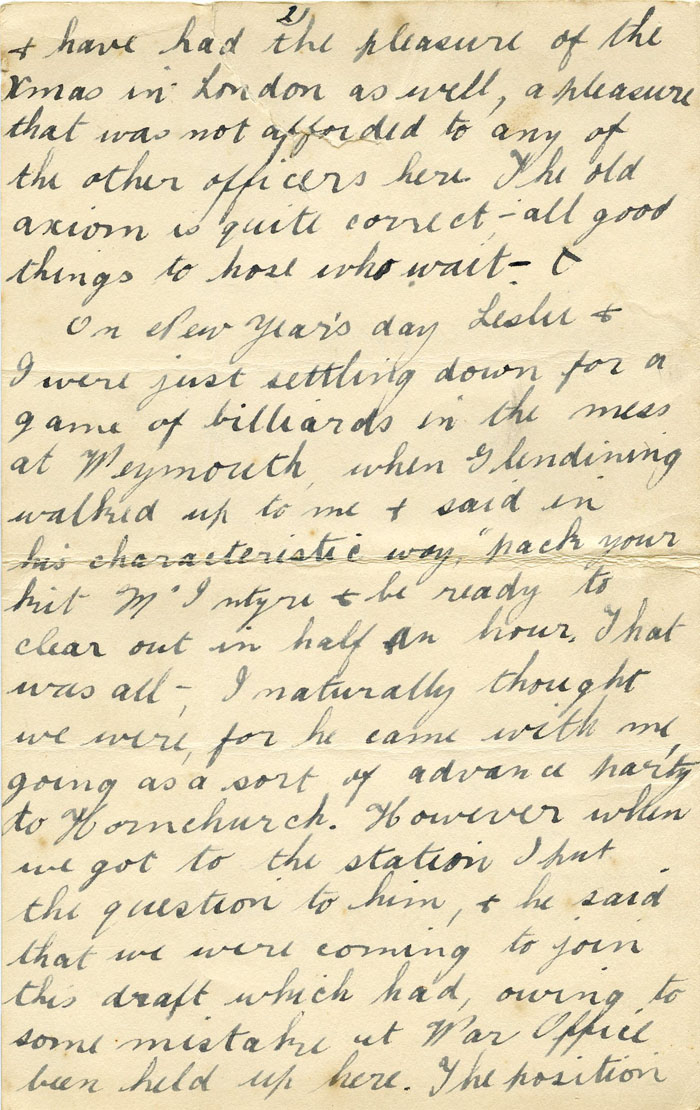 2)
& have had the pleasure of the
Xmas in London as well, a pleasure
that was not afforded to any of
the other officers here. The old
axiom is quite correct - all good
things to hose who wait -
On New Year's day Leslie &
I were just settling down for a
game of billiards in the mess
at Weymouth, when Glendining
walked up to me & said in
his characteristic way, "pack your
kit McIntyre & be ready to
clear out in half an hour. That
was all -, I naturally thought
we were, for he came with me,
going as a sort of advance party
to Hornchurch. However when
we got to the station I put
the question to him, & he said
that we were coming to join
this draft which had, owing to
some mistake at War Office
been held up here. The position